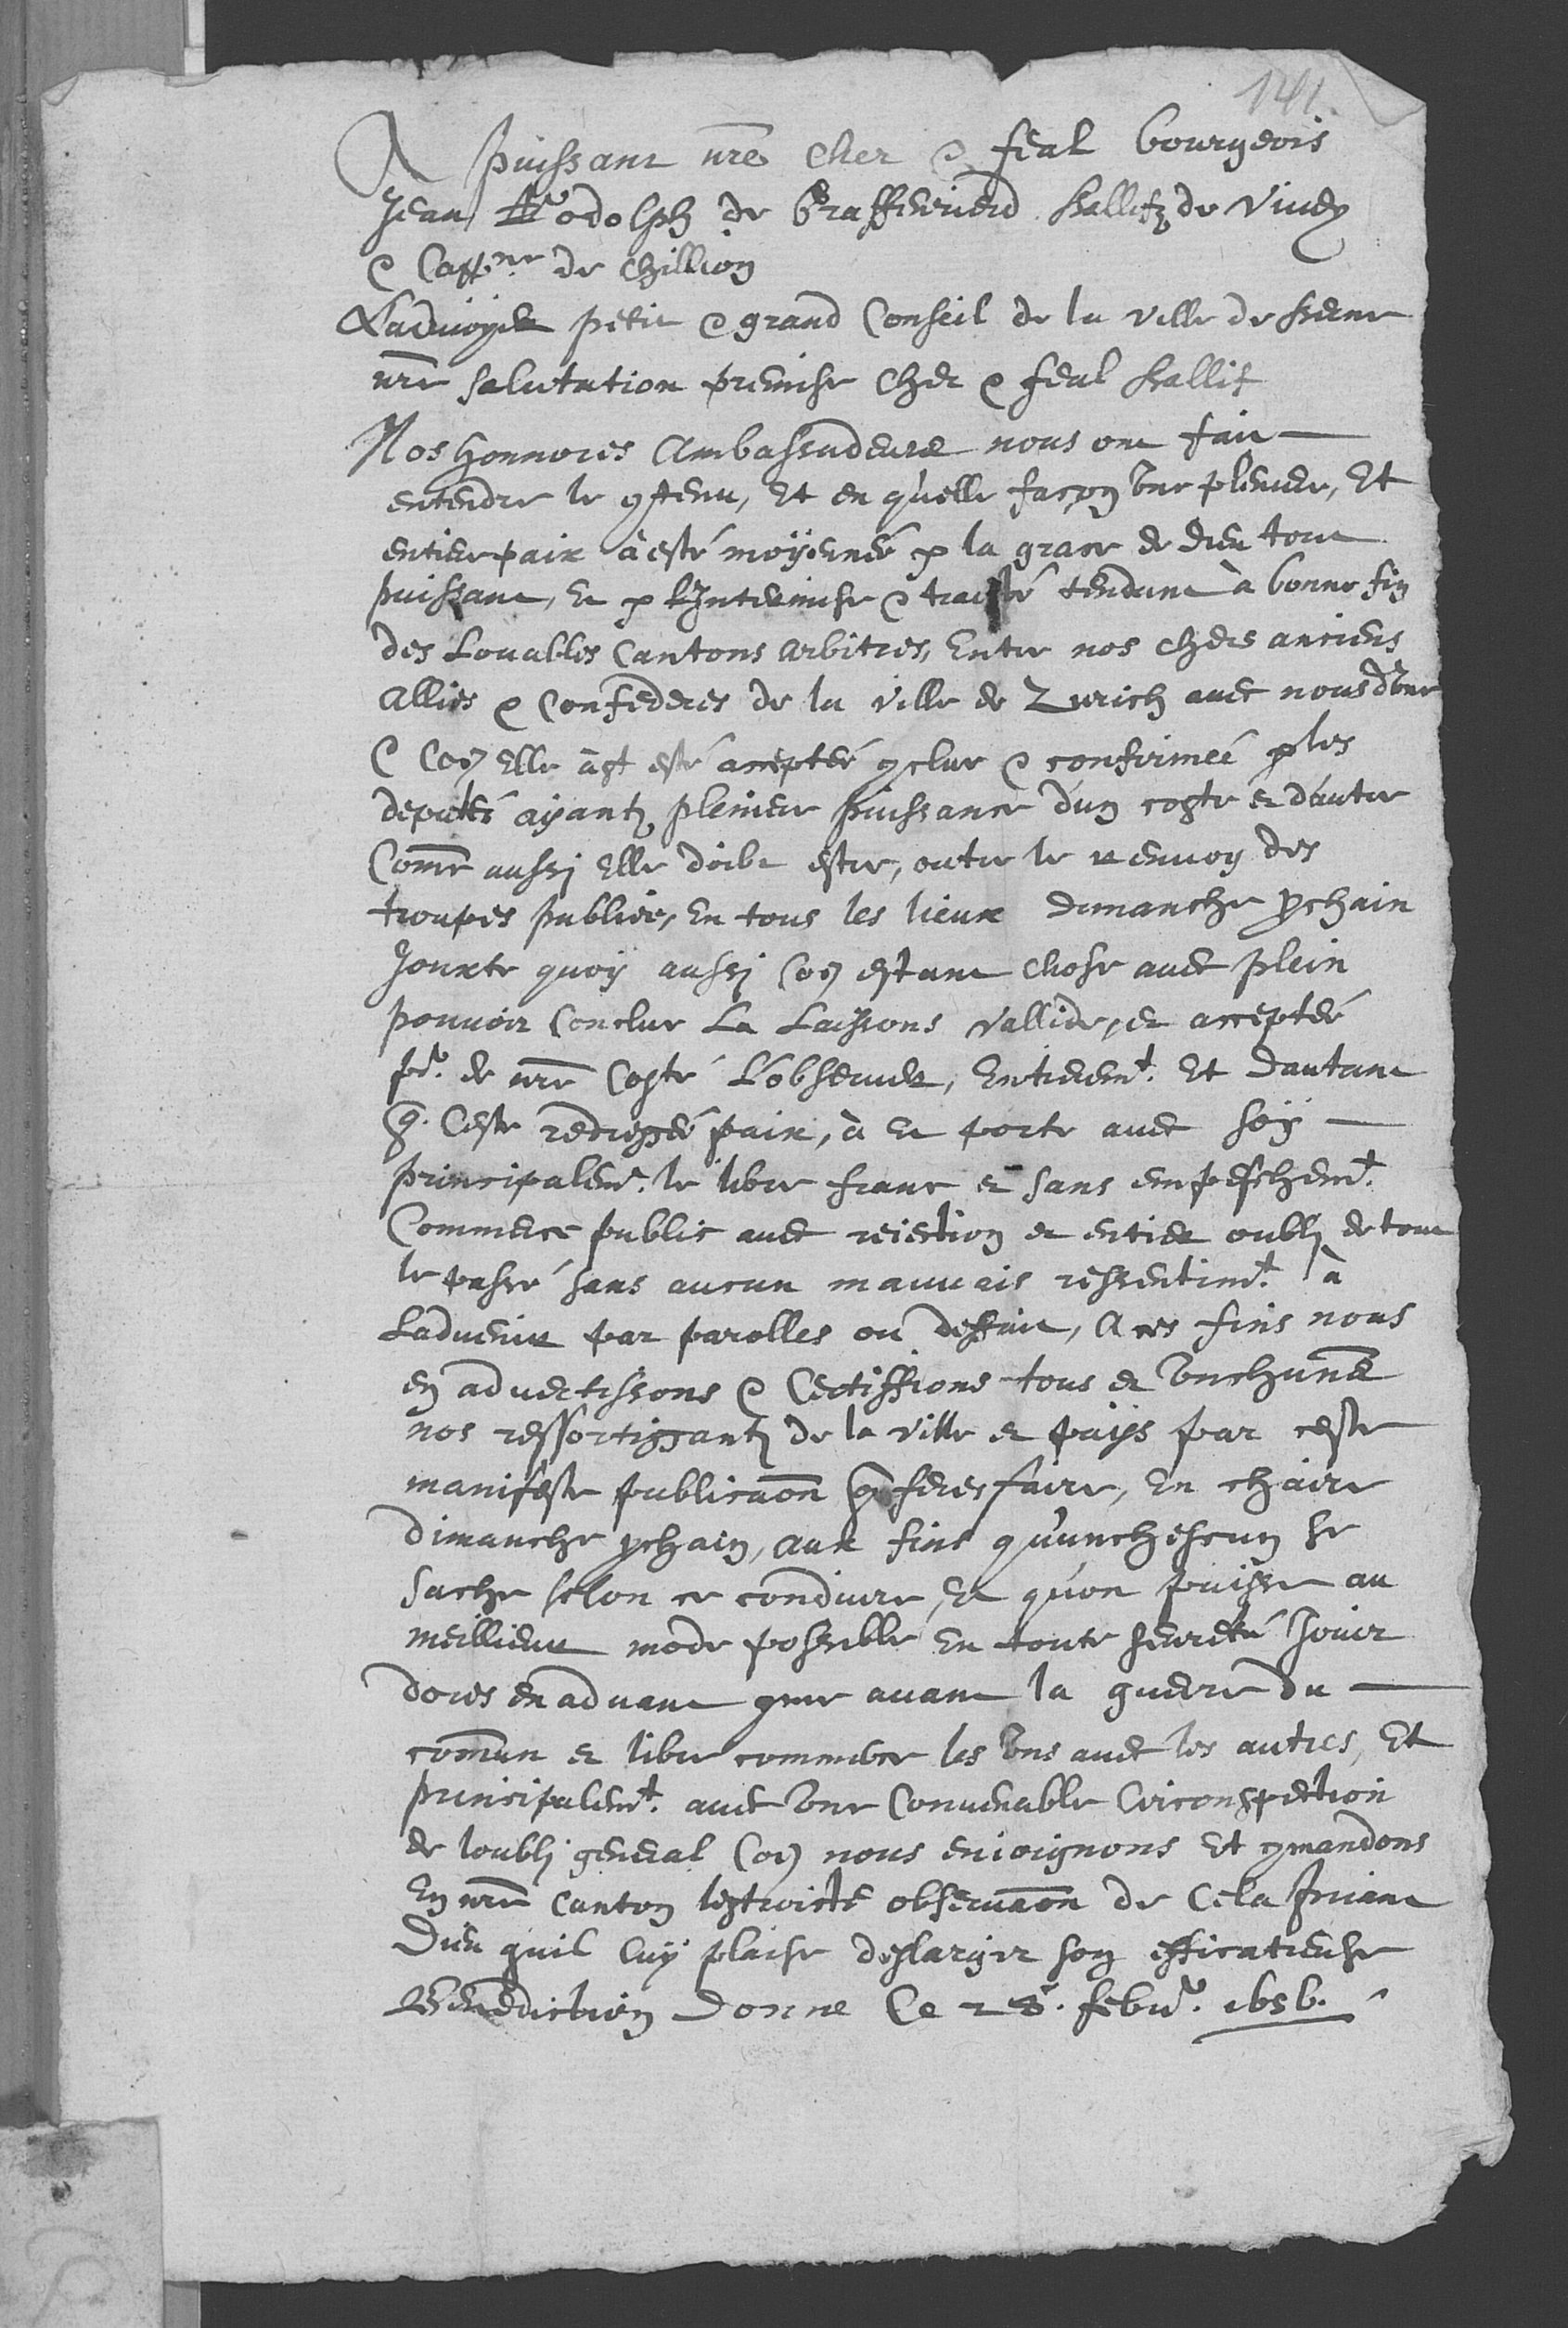 141.
A puissant nre cher & feal bourgeois
Jean Rodolph de Graffenried Ballifz de Viuey
& Cappne de Chillion
Ladvoyer petit & grand Conseil de la ville de Berne
nre salutation premise Cher & feal Ballif
Nos honnores Ambassadeurs nous ont fait
entendre le 9tenu, Et en quelle façon une pleniere, Et
entiere paix à esté moÿennée p la grace de Dieu tout
puissant, Et p l'Intermise & traitté tendant à bonne fin
des Louables Cantons arbitres, Entre nos chers anciens
Allies & Confederes de la ville de Zurich avec nous d'une
& Coe Elle ast esté acceptée 9clue & confirmeé p les
deputés aÿantz pleniere puissance d'un coste et d'autre
Come aussi Elle doibt estre, outre le renvoy des
troupes publiée, En tous les lieux dimanche pchain
Jouxte quoÿ aussi Coe estant chose avec plein
pouvoir Conclue La Laissons vallide, et acceptée
pr. de nre Costé L'observer, Entieremt. Et dautant
q. Ceste redressée paix, à Et porte avec soÿ
principalemt. le libre franc et sans empeschemt.
Commerce public avec reiection et entier oubly de tout
le passé sans aucun mauvais ressentimt. à
Ladvenir par parolles ou deffait, A ces fins nous
en advertissons & Certiffions tous et unchungs
nos ressortissantz de la ville et païs par ceste
manifeste publicaon q feres faire, En chaire
dimanche pchain, aux fins qu'unchescun se
sache selon ce conduire, Et qu'on puisse au
meillieur mode possible En toute seureté Jouir
dores en advant 9me avant la guerre du
comun et libre commerce les uns avec les autres, Et
principalemt. avec une Convenable Circonspection
de loubly general Coe nous enioignons Et 9mandons
En nre Canton lestroicte observaon de Cela priant
Dieu quil luÿ plaise deslargir son efficatieuse
Benediction Donné Ce 28. febvr. 1656.